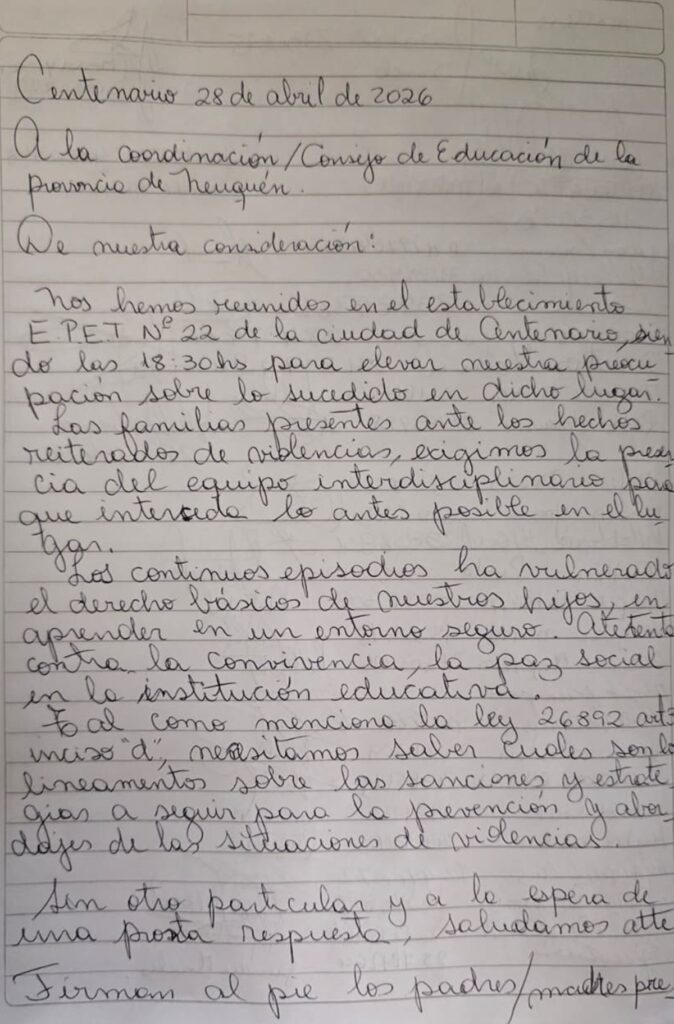 Centenario 28 de abril de 2026
A la coordinación/Consejo de Educación de la
provincia de Neuquén.
De nuestra consideración:
Nos hemos reunidos en el establecimiento
E.P.E.T Nº 22 de la ciudad de Centenario, sien
do las 18:30hs para elevar nuestra preocu
pación sobre lo sucedido en dicho lugar.
Las familias presentes ante los hechos
reiterados de violencias, exigimos la presen
cia del equipo interdisciplinario para
que interceda lo antes posible en el lu-
gar.
Los continuos episodios ha vulnerado
el derecho básicos de nuestros hijos, en
aprender en un entorno seguro. Atetento
contra la convivencia, la paz social
en la institución educativa.
Tal como menciona la ley 26892 art3
inciso "d", necesitamos saber cuales son lo
lineamentos sobre las sanciones y estrate
gias a seguir para la prevención y abor
dajes de las situaciones de violencias.
Sin otro particular y a la espera de
una pronta respuesta, saludamos atte
Firman al pie los padres/madres pre